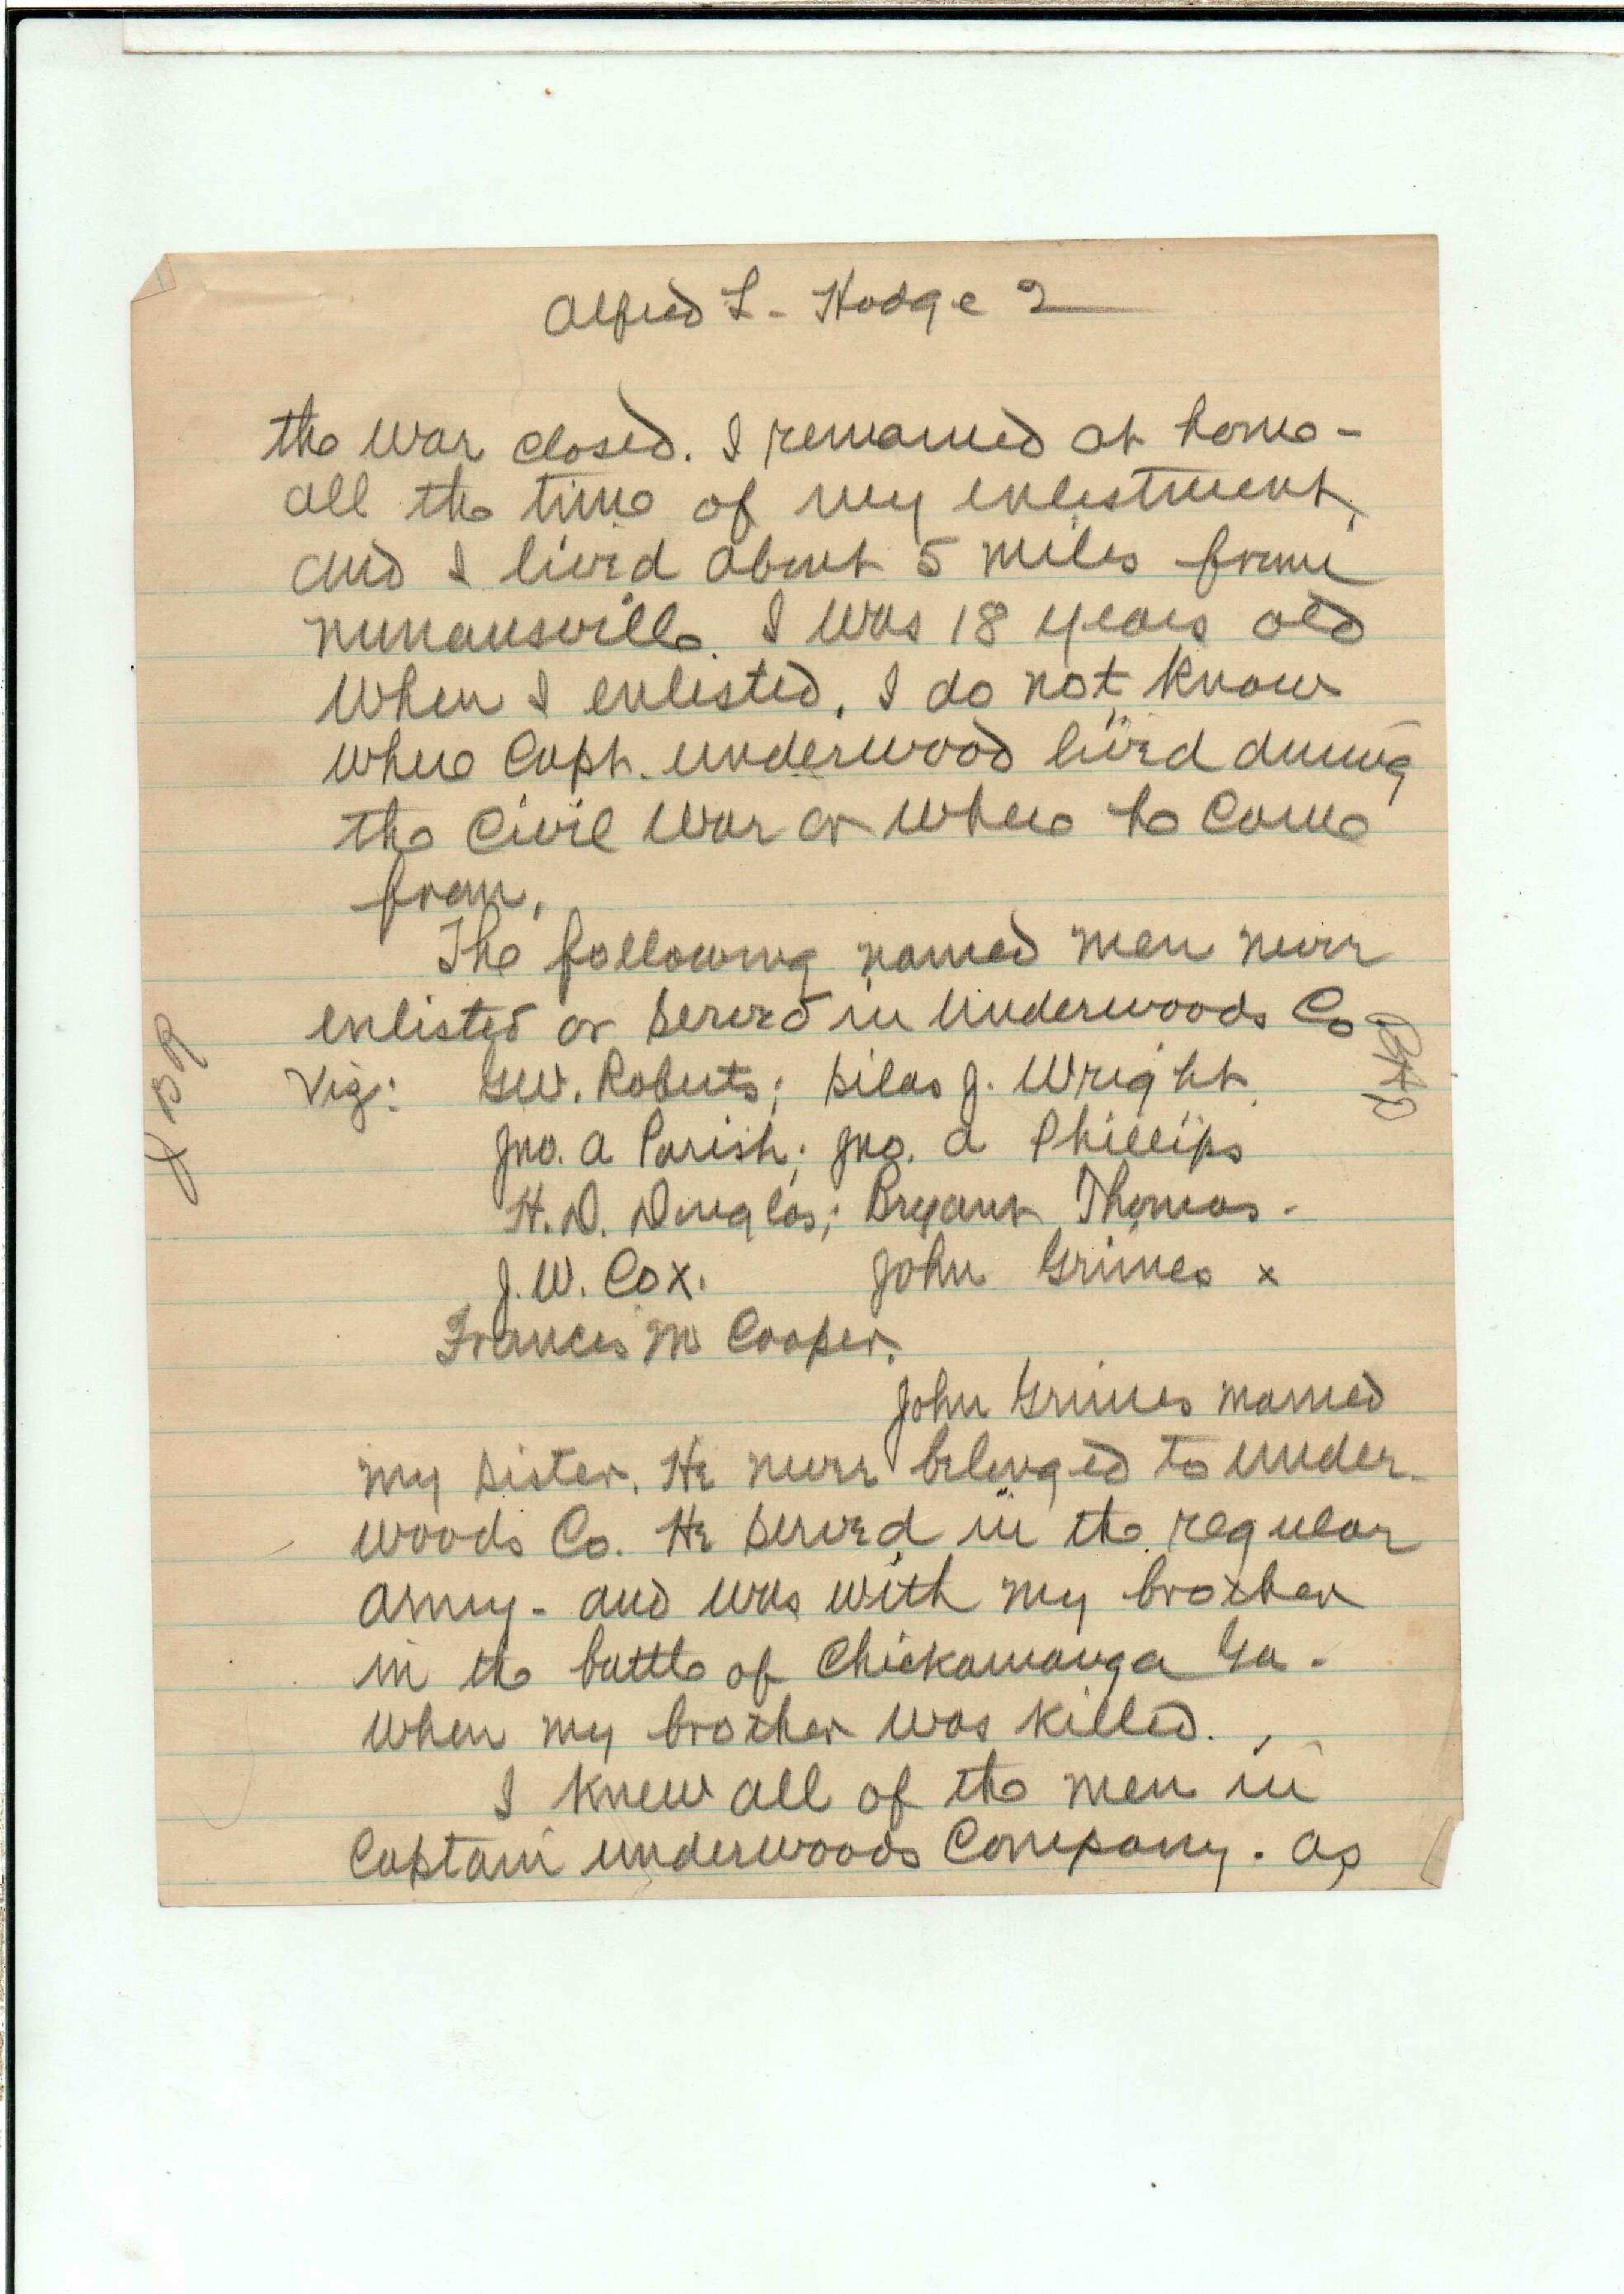 Alfred L. Hodge 2
the war closed. I remained at home -
all the time of my enlistment,
and I lived about 5 miles from
numansville. I was 18 years old
when I enlisted. I do not know
where Capt. underwood lived during
the Civil War or where he Came
from.
The following named men never
enlisted or served in Underwoods Co
Viz: GW. Roberts; Silas J. Wright
Jno. a Parish; Jno. a Phillips
H. D. Douglas; Bryant Thomas.
J. W. Cox. John Grimes x
Francis M Cooper.
John Grimes married
my sister. He never belonged to under-
woods Co. He served in the regular
army - and was with my brother
in the battle of Chickamauga Ga.
when my brother was killed.
I knew all of the men in
Captain underwoods Company. as